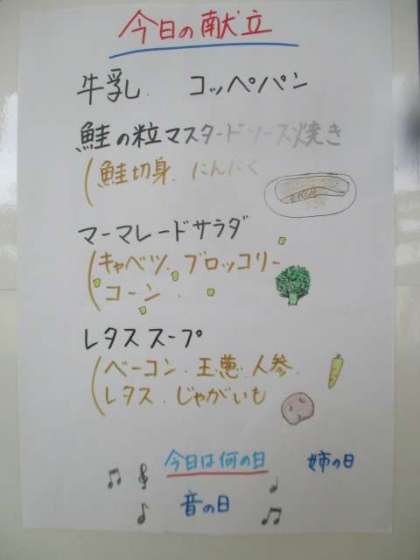 今日の献立
牛乳. コッペパン
鮭の粒マスタードソース焼き
(鮭切身. にんにく
マーマレードサラダ
(キャベツ. ブロッコリー
コーン
レタススープ
(ベーコン. 玉葱. 人参.
レタス. じゃがいも
今日は何の日 姉の日
音の日